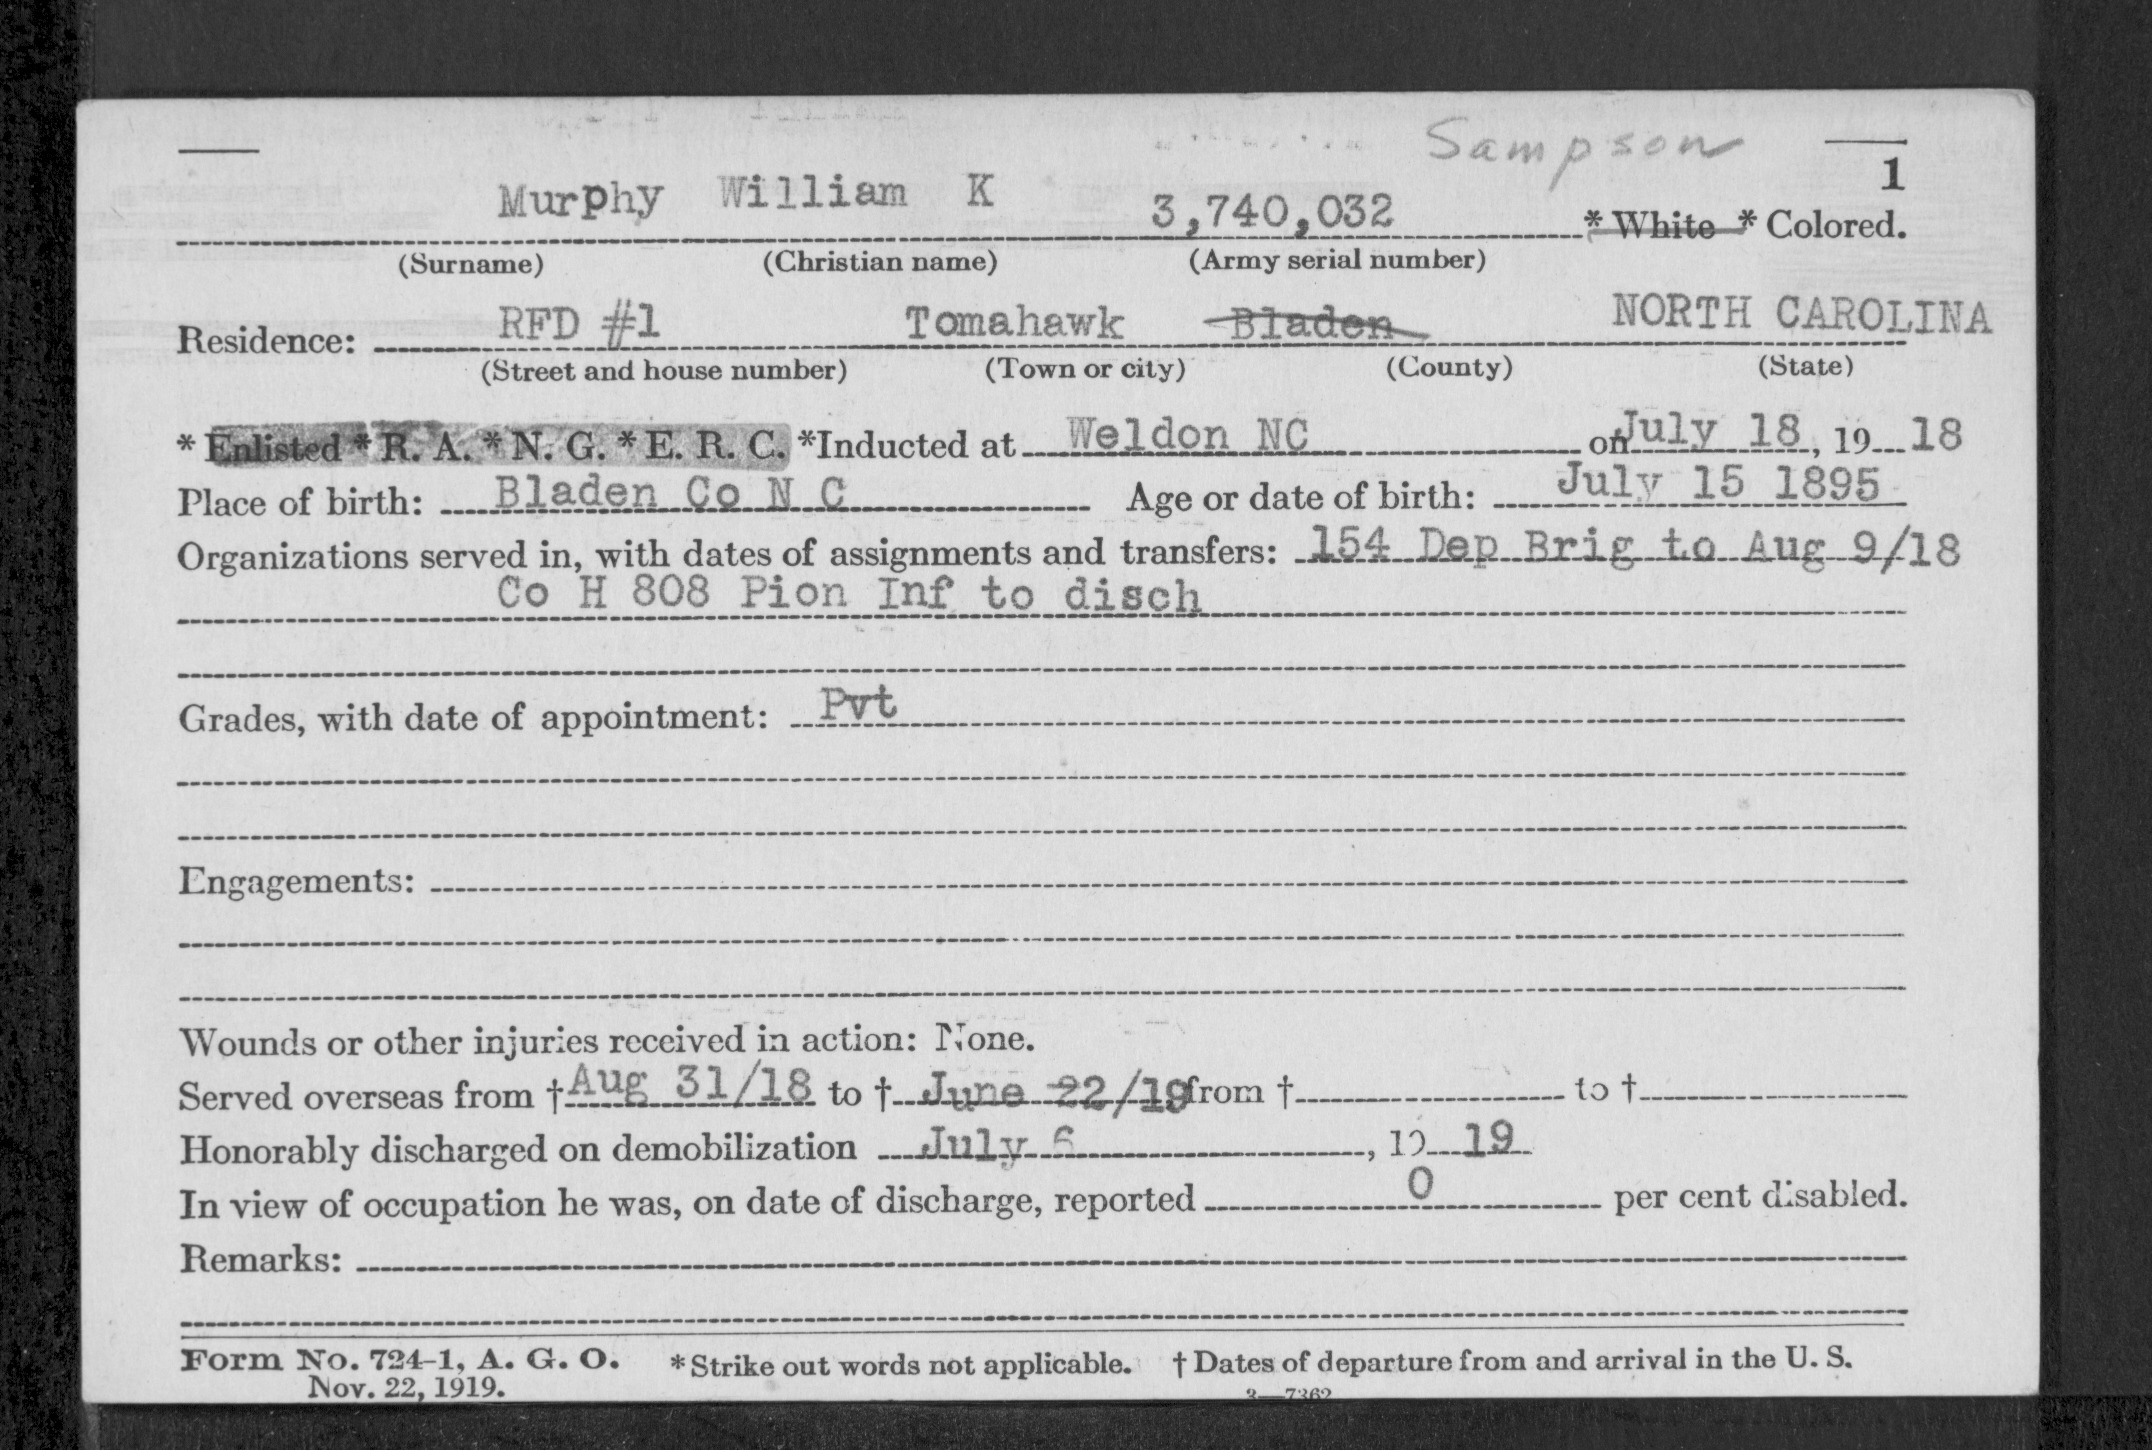 Sampson
1
Murphy William K 3,740,032 * White * Colored.
(Surname) (Christian name) (Army serial number)
Residence: RFD #1 Tomahawk Bladen NORTH CAROLINA
(Street and house number) (Town or city) (County) (State)
* Enlisted * R. A. * N. G. * E. R. C. *Inducted at Weldon NC on July 18, 19 18
Place of birth: Bladen Co N C Age or date of birth: July 15 1895
Organizations served in, with dates of assignments and transfers: 154 Dep Brig to Aug 9/18
Co H 808 Pion Inf to disch
Grades, with date of appointment: Pvt
Engagements:
Wounds or other injuries received in action: None.
Served overseas from †Aug 31/18 to † June 22/19 from † to †
Honorably discharged on demobilization July 6, 19 19
In view of occupation he was, on date of discharge, reported 0 per cent disabled.
Remarks:
Form No. 724-1, A. G. O. *Strike out words not applicable. † Dates of departure from and arrival in the U. S.
Nov. 22, 1919. 3—7362